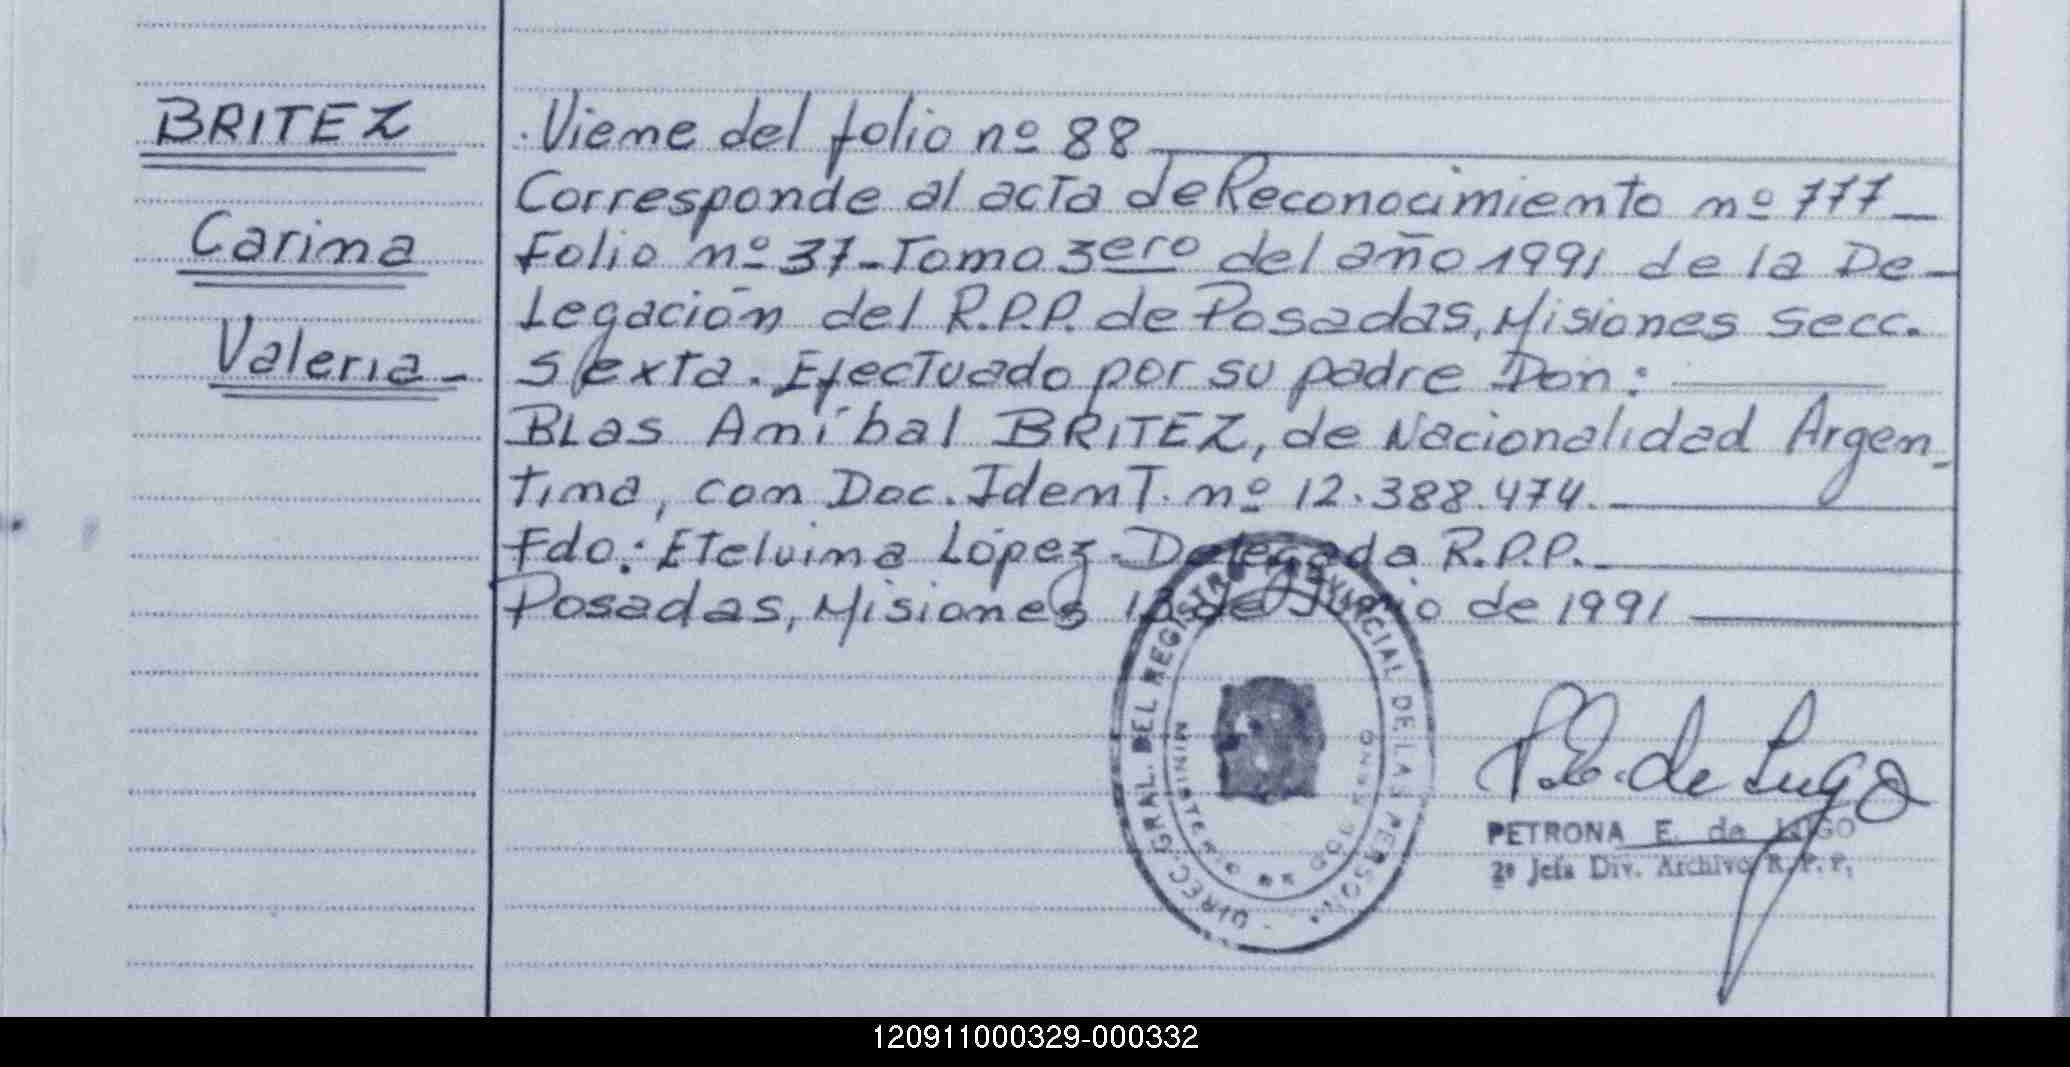 BRITEZ
Carina
Valeria-
.Viene del folio nº 88
Corresponde al acta de Reconocimiento nº 777-
Folio nº 37-Tomo 3ero del año 1991 de la De-
legación del R.P.P. de Posadas, Misiones Secc.
Sexta. Efectuado por su padre Don:
BLas Aníbal BRITEZ, de Nacionalidad Argen-
tina, con Doc. Ident. nº 12.388.474.
Fdo: Etelvina López. Delegada R.P.P.
Posadas, Misiones de 1991
DIREC. GRAL. DEL REGISTRO PROVINCIAL DE LAS PERSON.
MINISTERIO DE GOBIERNO
P.E. de Lugo
PETRONA E. de LUGO
2º Jefa Div. Archivo R.P.P.
120911000329-000332